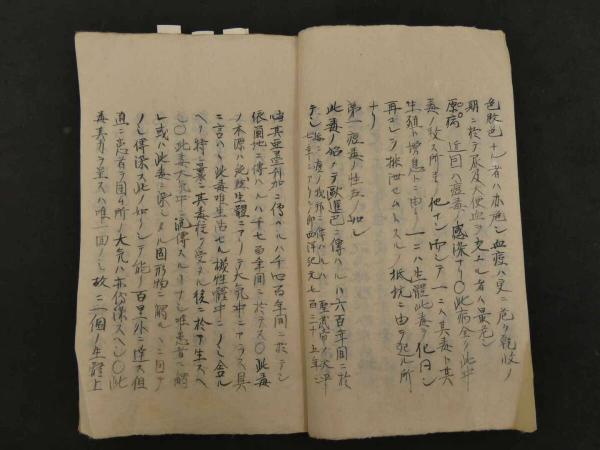 色放色ナル者ハ亦危シ血痘ハ更ニ危シ乾收ノ
期ニ於テ尿及大便血ヲ交ユル者ハ最危シ
原病 近因ハ痘毒ノ感染ナリ〇此病全ク此
毒ノ致ス所ニシテ他ナシ而シテ一ニハ其毒ト其
生殖ト増息トニ由リ一ニハ生體此毒ヲ化内シ
再コレヲ排泄セムトスルノ抵抗ニ由テ起ル所
ナリ
第一痘毒ノ性左ノ如シ
此毒ノ始メテ歐邏巴ニ傳ハルハ六百年間ニ於
テシ
臨其亜墨利加ニ傳ハルハ千四百年間ニ於テシ
依蘭地ニ傳ハルハ千七百年間ニ於テス〇此毒
ノ本源ハ生體ニアリテ大気中ニアラス其
ニ言ハヽ此毒唯生活セル機性體中ニノミ舍ル
ヘク特ニ曩ニ其毒ヲ受タル後ニ於テ生スヘ
シ〇此毒大気中ニ流傳スルヿナシ唯患者ニ觸
レ或ハ此毒ニ染シタル固形物ニ觸ルヽニ因テ
ノミ傳染ス此ノ如クシテ能ク百里外ニ達ス但
直ニ患者ヲ囲ム所ノ大気ハ亦傳染スヘシ〇此
毒其力ヲ呈スハ唯一回ノミ故ニ一個ノ生體上